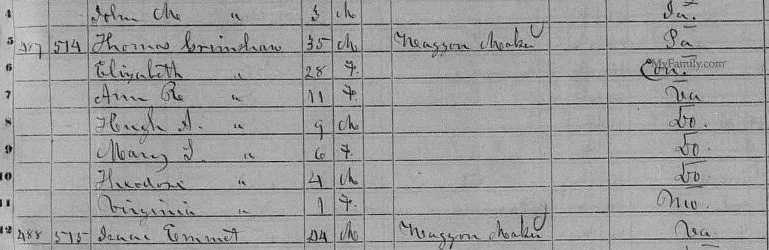 4 John M " 3 M Pa.
5 487 514 Thomas Crimshaw 35 M Waggon Maker Pa
6 Elizabeth " 28 F. Con.
MyFamily.com
7 Ann Re " 11 F. Va
8 Hugh A. " 9 M Do.
9 Mary J. " 6 F. Do.
10 Theodore " 4 M Do.
11 Virginia " 1 F. Mo.
12 488 515 Isaac Emmet 44 M Waggon Maker Va